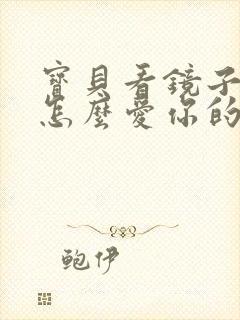 寶貝看鏡子
怎麼愛你的
鮑伊